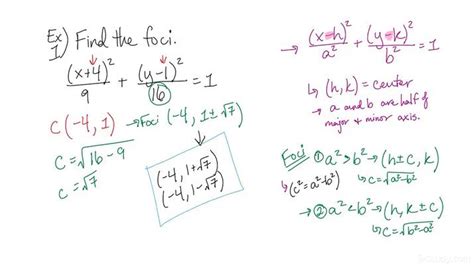 Ex 1) Find the foci.
(x+4)²/9 + (y-1)²/16 = 1
C(-4, 1) → Foci (-4, 1±√7)
c = √16-9
c = √7
(-4, 1+√7)
(-4, 1-√7)
→ (x-h)²/a² + (y-k)²/b² = 1
↳ (h,k) = center
→ a and b are half of
major + minor axis.
Foci ① a² > b² → (h±c, k)
↳ (c² = a²-b²) ↳ c = √a²-b²
→ ② a² < b² → (h, k±c)
↳ c = √b²-a²